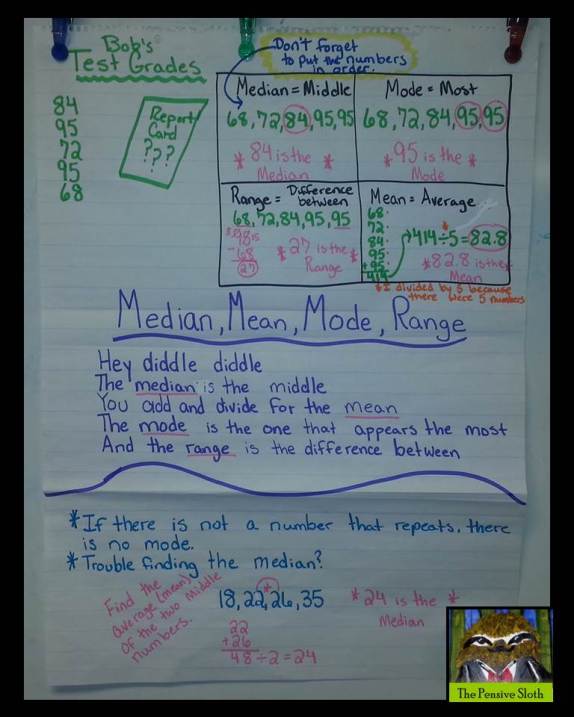 Bob's
Test Grades
84
95
72
95
68
Report
Card
???
Don't forget
to put the numbers
in order.
Median = Middle
68, 72, 84, 95, 95
* 84 is the *
Median
Mode = Most
68, 72, 84, 95, 95
* 95 is the *
Mode
Range = Difference
between
68, 72, 84, 95, 95
-68
27
* 27 is the *
Range
Mean = Average
68
72
84
95
+95
414
414÷5=82.8
*82.8 is the*
Mean
*I divided by 5 because
there were 5 numbers
Median, Mean, Mode, Range
Hey diddle diddle
The median is the middle
You add and divide for the mean
The mode is the one that appears the most
And the range is the difference between
*If there is not a number that repeats, there
is no mode.
*Trouble finding the median?
Find the
average (mean)
of the two middle
numbers.
18, 22, 26, 35
22
+26
48÷2=24
* 24 is the *
Median
The Pensive Sloth